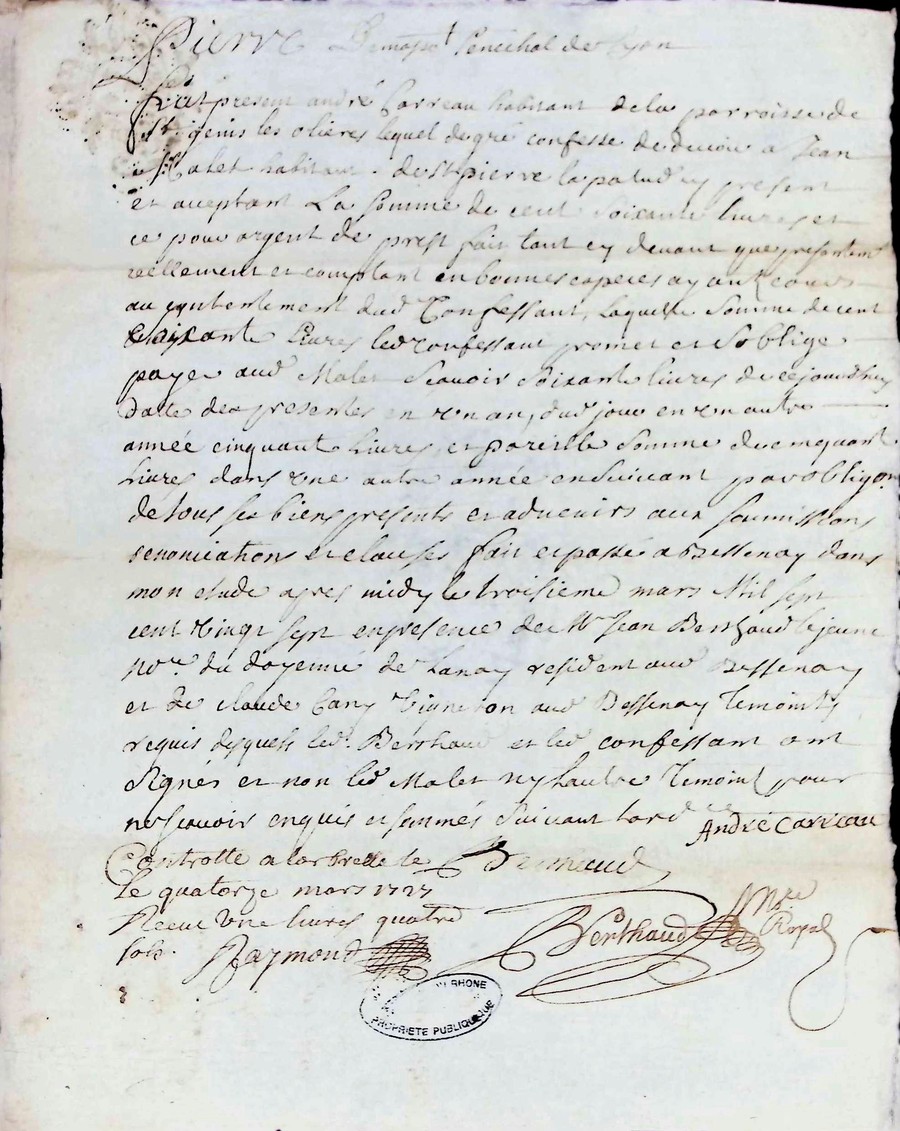 Pierre Senechal de Lyon
fut present andré Carreau habitant de la parroisse de
St. genis les olières lequel de gré confesse de devoir a Jean
Malet habitant de St pierre la palud cy present
et acceptant La somme de cent soixante livres et
ce pour argent de prest fait tant cy devant que presentemt
reellement et comptant en bonnes especes ayant cours
au contentement dud Confessant, laquelle somme de cent
soixante livres led confessant promet et soblige
payer aud Malet scavoir soixante livres de cejourdhuy
datte des presentes en un an, dud jour en un autre
année cinquant livres, et pareille somme de cinquant
livres dans une autre année ensuivant par obligon
de tous ses biens presents et advenirs aux soumissions
renonciations et clauses fait et passé a Bessenay dans
mon etude apres midy le troisieme mars Mil sept
cent vingt sept en presence de Mr Jean Berthaud le jeune
nore du doyenné de resident aud Bessenay
et de claude Cany vigneron aud Bessenay Temoints
requis desquels led. Berthaud et led confessant ont
signés et non led Malet ny lautre Temoint pour
ne scavoir enquis et sommés suivant lord ce
André Carreau
Controllé a larbrelle le Berthaud
Le quatorze mars 1727
Receu Une livres quatre
sols. Raymond
Berthaud Nre
Royal
RHONE
PROPRIETE PUBLIQUE